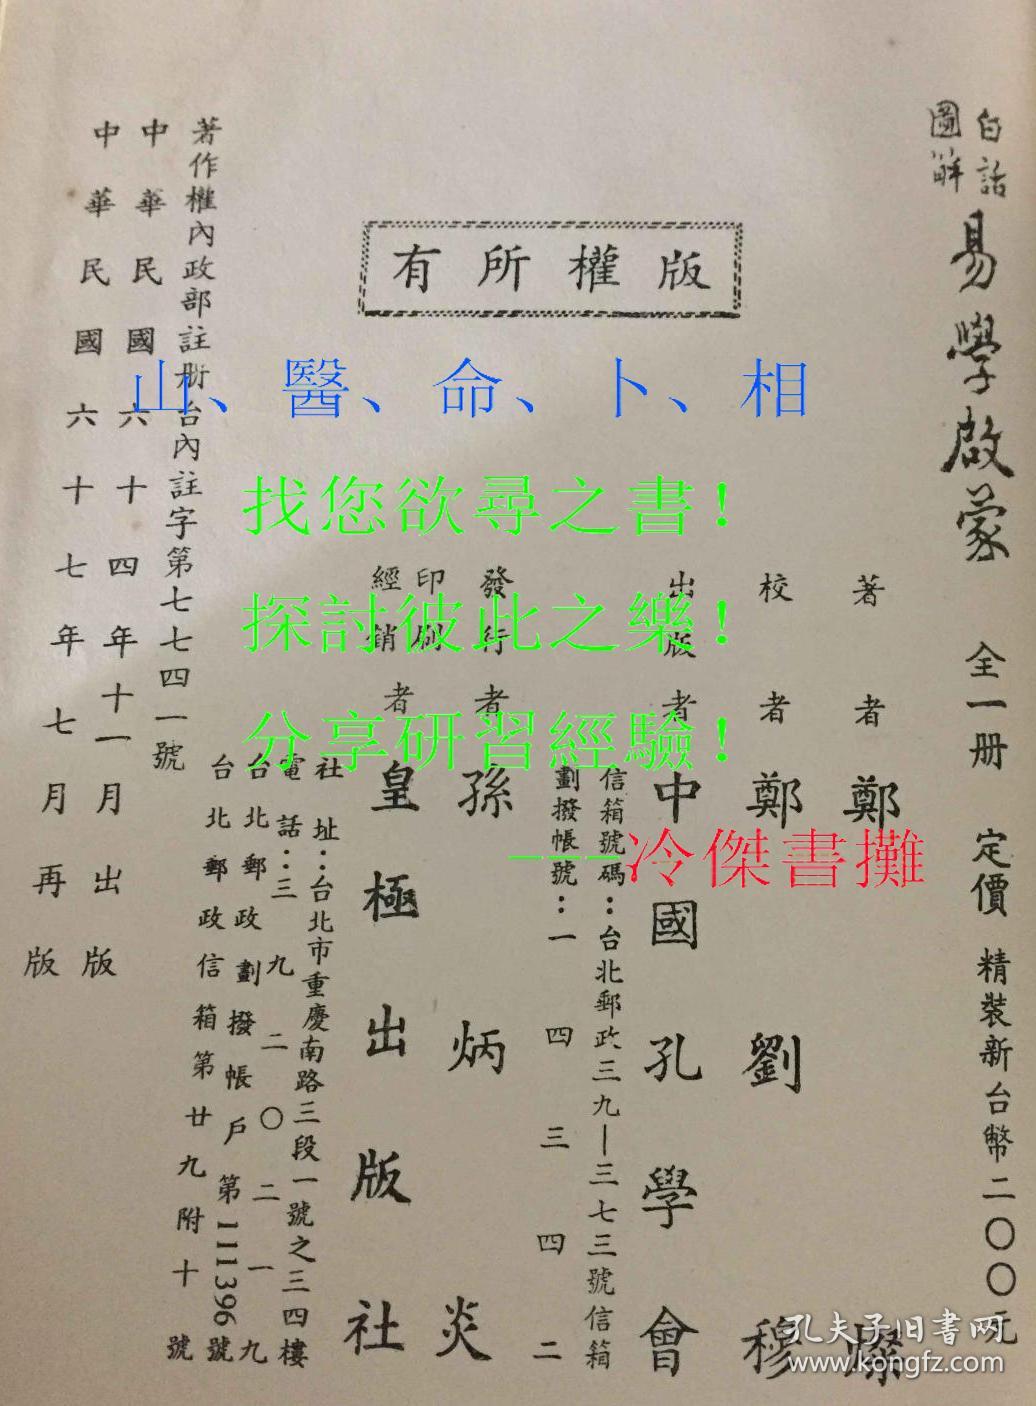 白話圖解易學啟蒙 全一冊 定價 精裝新台幣二〇〇元
著者 鄭燦
校者 鄭劉穆
出版者 中國孔學會
信箱號碼：台北郵政三九—三七三號信箱
劃撥帳號：一四三四二
版權所有
發行者 孫炳炎
印刷
經銷者 皇極出版社
社址：台北市重慶南路三段一號之三四樓
電話：三九二〇二一九
台北郵政劃撥帳戶第111396號
台北郵政信箱第廿九附十號
著作權內政部註冊台內註字第七七四一號
中華民國六十四年十一月出版
中華民國六十七年七月再版
山、醫、命、卜、相
找您欲尋之書！
探討彼此之樂！
分享研習經驗！
---冷傑書攤
孔夫子旧書网
www.kongfz.com